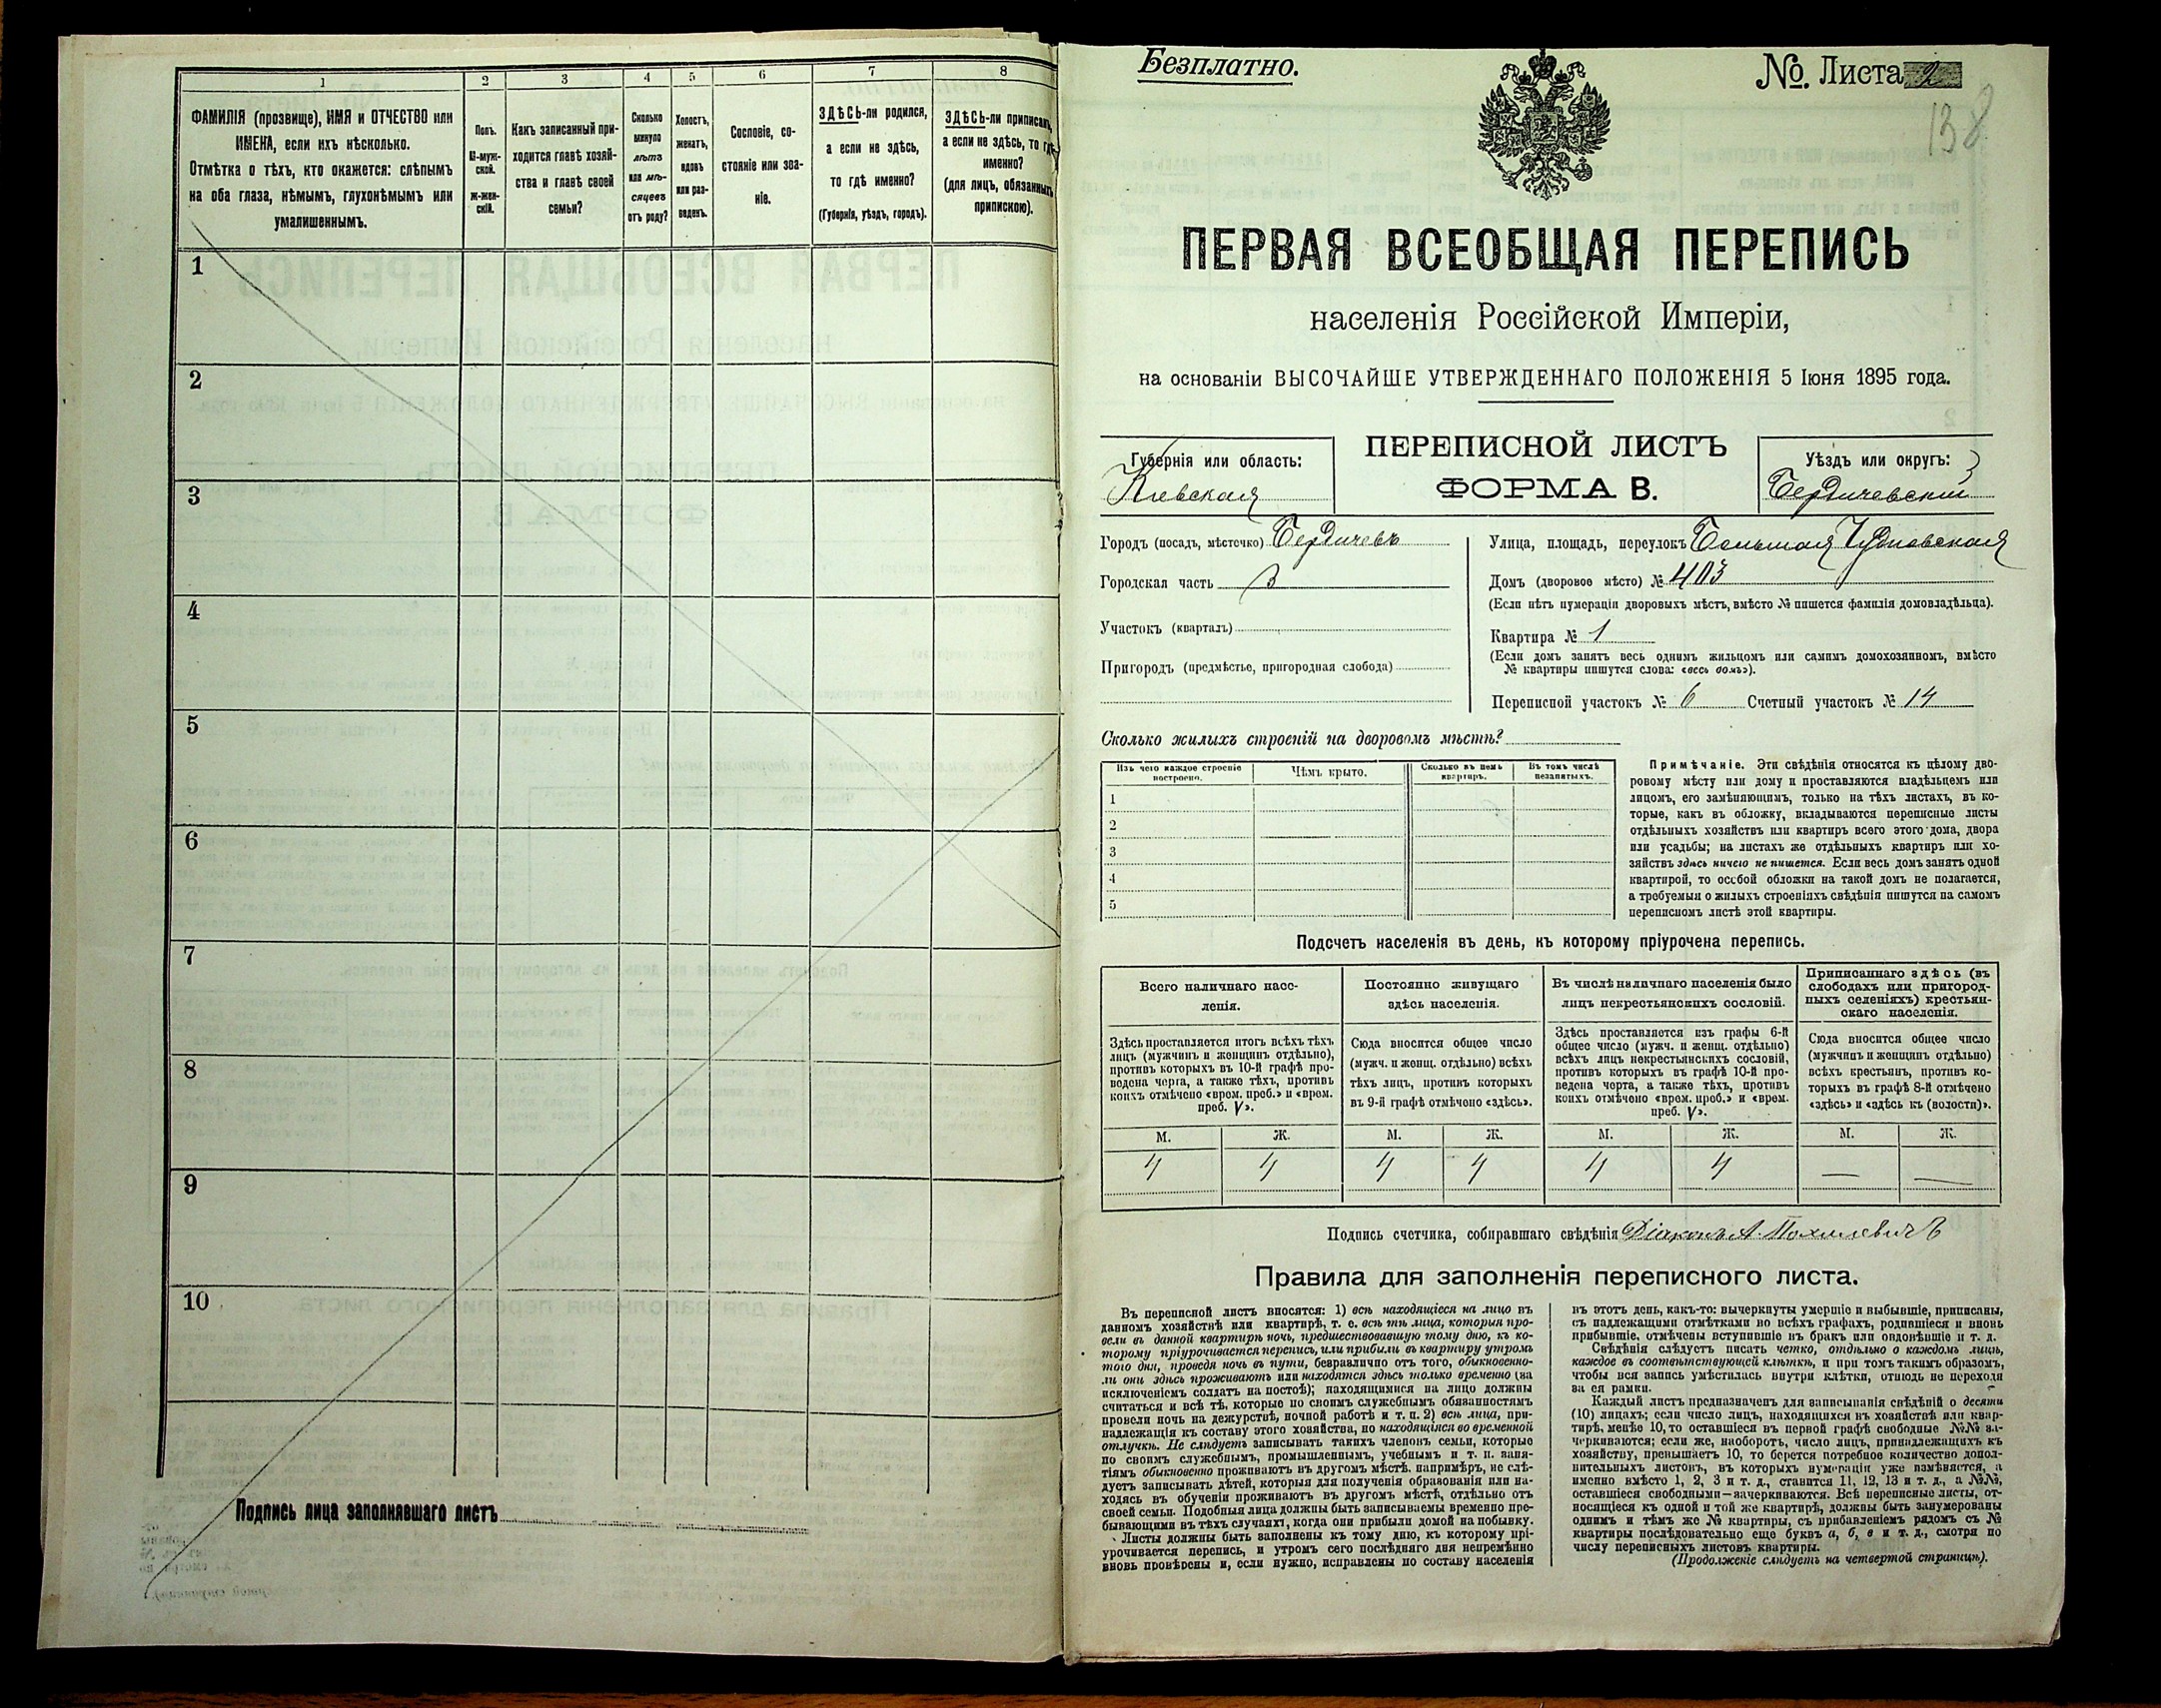 1
2
3
4
5
6
7
8
ФАМИЛІЯ (прозвище), ИМЯ и ОТЧЕСТВО или
ИМЕНА, если ихъ нѣсколько.
Отмѣтка о тѣхъ, кто окажется: слѣпымъ
на оба глаза, нѣмымъ, глухонѣмымъ или
умалишеннымъ.
Полъ.
М-муж-
ской.
ж-жен-
скій.
Какъ записанный при-
ходится главѣ хозяй-
ства и главѣ своей
семьи?
Сколько
минуло
лѣтъ
или мѣ-
сяцевъ
отъ роду?
Холостъ,
женатъ,
вдовъ
или раз-
веденъ.
Сословіе, со-
стояніе или зва-
ніе.
ЗДѢСЬ-ли родился,
а если не здѣсь,
то гдѣ именно?
(Губернія, уѣздъ, городъ).
ЗДѢСЬ-ли приписанъ,
а если не здѣсь, то гдѣ
именно?
(для лицъ, обязанныхъ
припискою).
1
2
3
4
5
6
7
8
9
10
Подпись лица заполнявшаго листъ
Безплатно.
№. Листа 2
138
ПЕРВАЯ ВСЕОБЩАЯ ПЕРЕПИСЬ
населенія Россійской Имперіи,
на основаніи ВЫСОЧАЙШЕ УТВЕРЖДЕННАГО ПОЛОЖЕНІЯ 5 Іюня 1895 года.
Губернія или область:
Кіевская
ПЕРЕПИСНОЙ ЛИСТЪ
ФОРМА В.
Уѣздъ или округъ:
Бердичевскій
Городъ (посадъ, мѣстечко) Бердичевъ
Городская часть 3
Участокъ (кварталъ)
Пригородъ (предмѣстье, пригородная слобода)
Улица, площадь, переулокъ Большая Чудновская
Домъ (дворовое мѣсто) № 403
(Если нѣтъ нумераціи дворовыхъ мѣстъ, вмѣсто № пишется фамилія домовладѣльца).
Квартира № 1
(Если домъ занятъ весь однимъ жильцомъ или самимъ домохозяиномъ, вмѣсто
№ квартиры пишутся слова: «весь домъ»).
Переписной участокъ № 6 Счетный участокъ № 14
Сколько жилыхъ строеній на дворовомъ мѣстѣ?
Изъ чего каждое строеніе
построено.
Чѣмъ крыто.
Сколько въ немъ
квартиръ.
Въ томъ числѣ
незанятыхъ.
1
2
3
4
5
Примѣчаніе. Эти свѣдѣнія относятся къ цѣлому дво-
ровому мѣсту или дому и проставляются владѣльцемъ или
лицомъ, его замѣняющимъ, только на тѣхъ листахъ, въ ко-
торые, какъ въ обложку, вкладываются переписные листы
отдѣльныхъ хозяйствъ или квартиръ всего этого дома, двора
или усадьбы; на листахъ же отдѣльныхъ квартиръ или хо-
зяйствъ здѣсь ничего не пишется. Если весь домъ занятъ одной
квартирой, то особой обложки на такой домъ не полагается,
а требуемыя о жилыхъ строеніяхъ свѣдѣнія пишутся на самомъ
переписномъ листѣ этой квартиры.
Подсчетъ населенія въ день, къ которому пріурочена перепись.
Всего наличнаго насе-
ленія.
Здѣсь проставляется итогъ всѣхъ тѣхъ
лицъ (мужчинъ и женщинъ отдѣльно),
противъ которыхъ въ 10-й графѣ про-
ведена черта, а также тѣхъ, противъ
коихъ отмѣчено «врем. преб.» и «врем.
преб. V».
Постоянно живущаго
здѣсь населенія.
Сюда вносится общее число
(мужч. и женщ. отдѣльно) всѣхъ
тѣхъ лицъ, противъ которыхъ
въ 9-й графѣ отмѣчено «здѣсь».
Въ числѣ наличнаго населенія было
лицъ некрестьянскихъ сословій.
Здѣсь проставляется изъ графы 6-й
общее число (мужч. и женщ. отдѣльно)
всѣхъ лицъ некрестьянскихъ сословій,
противъ которыхъ въ графѣ 10-й про-
ведена черта, а также тѣхъ, противъ
коихъ отмѣчено «врем. преб.» и «врем.
преб. V».
Приписаннаго здѣсь (въ
слободахъ или пригород-
ныхъ селеніяхъ) крестьян-
скаго населенія.
Сюда вносится общее число
(мужчинъ и женщинъ отдѣльно)
всѣхъ крестьянъ, противъ ко-
торыхъ въ графѣ 8-й отмѣчено
«здѣсь» и «здѣсь къ (волости)».
М. Ж. М. Ж. М. Ж. М. Ж.
4 4 4 4 4 4 — —
Подпись счетчика, собиравшаго свѣдѣнія Діаконъ А. Похилевичъ
Правила для заполненія переписного листа.
Въ переписной листъ вносятся: 1) всѣ находящіеся на лицо въ
данномъ хозяйствѣ или квартирѣ, т. е. всѣ тѣ лица, которыя про-
вели въ данной квартирѣ ночь, предшествовавшую тому дню, къ ко-
торому пріурочивается перепись, или прибыли въ квартиру утромъ
того дня, проведя ночь въ пути, безразлично отъ того, обыкновенно-
ли они здѣсь проживаютъ или находятся здѣсь только временно (за
исключеніемъ солдатъ на постоѣ); находящимися на лицо должны
считаться и всѣ тѣ, которые по своимъ служебнымъ обязанностямъ
провели ночь на дежурствѣ, ночной работѣ и т. п. 2) всѣ лица, при-
надлежащія къ составу этого хозяйства, но находящіяся во временной
отлучкѣ. Не слѣдуетъ записывать такихъ членовъ семьи, которые
по своимъ служебнымъ, промышленнымъ, учебнымъ и т. п. заня-
тіямъ обыкновенно проживаютъ въ другомъ мѣстѣ, напримѣръ, не слѣ-
дуетъ записывать дѣтей, которыя для полученія образованія или на-
ходясь въ обученіи проживаютъ въ другомъ мѣстѣ, отдѣльно отъ
своей семьи. Подобныя лица должны быть записываемы временно пре-
бывающими въ тѣхъ случаяхъ, когда они прибыли домой на побывку.
Листы должны быть заполнены къ тому дню, къ которому прі-
урочивается перепись, и утромъ сего послѣдняго дня непремѣнно
вновь провѣрены и, если нужно, исправлены по составу населенія
въ этотъ день, какъ-то: вычеркнуты умершіе и выбывшіе, приписаны,
съ надлежащими отмѣтками во всѣхъ графахъ, родившіеся и вновь
прибывшіе, отмѣчены вступившіе въ бракъ или овдовѣвшіе и т. д.
Свѣдѣнія слѣдуетъ писать четко, отдѣльно о каждомъ лицѣ,
каждое въ соотвѣтствующей клѣткѣ, и при томъ такимъ образомъ,
чтобы вся запись умѣстилась внутри клѣтки, отнюдь не переходя
за ея рамки.
Каждый листъ предназначенъ для записыванія свѣдѣній о десяти
(10) лицахъ; если число лицъ, находящихся въ хозяйствѣ или квар-
тирѣ, менѣе 10, то оставшіеся въ первой графѣ свободные №№ за-
черкиваются; если же, наоборотъ, число лицъ, принадлежащихъ къ
хозяйству, превышаетъ 10, то берется потребное количество допол-
нительныхъ листовъ, въ которыхъ нумерація уже измѣняется, а
именно вмѣсто 1, 2, 3 и т. д., ставится 11, 12, 13 и т. д., а №№,
оставшіеся свободными—зачеркиваются. Всѣ переписные листы, от-
носящіеся къ одной и той же квартирѣ, должны быть занумерованы
однимъ и тѣмъ же № квартиры, съ прибавленіемъ рядомъ съ №
квартиры послѣдовательно еще буквъ а, б, в и т. д., смотря по
числу переписныхъ листовъ квартиры.
(Продолженіе слѣдуетъ на четвертой страницѣ).